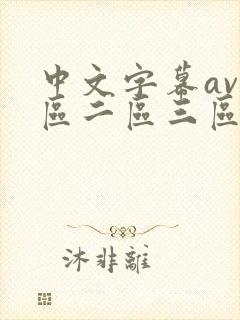 中文字幕av
區二區三區
沐非離